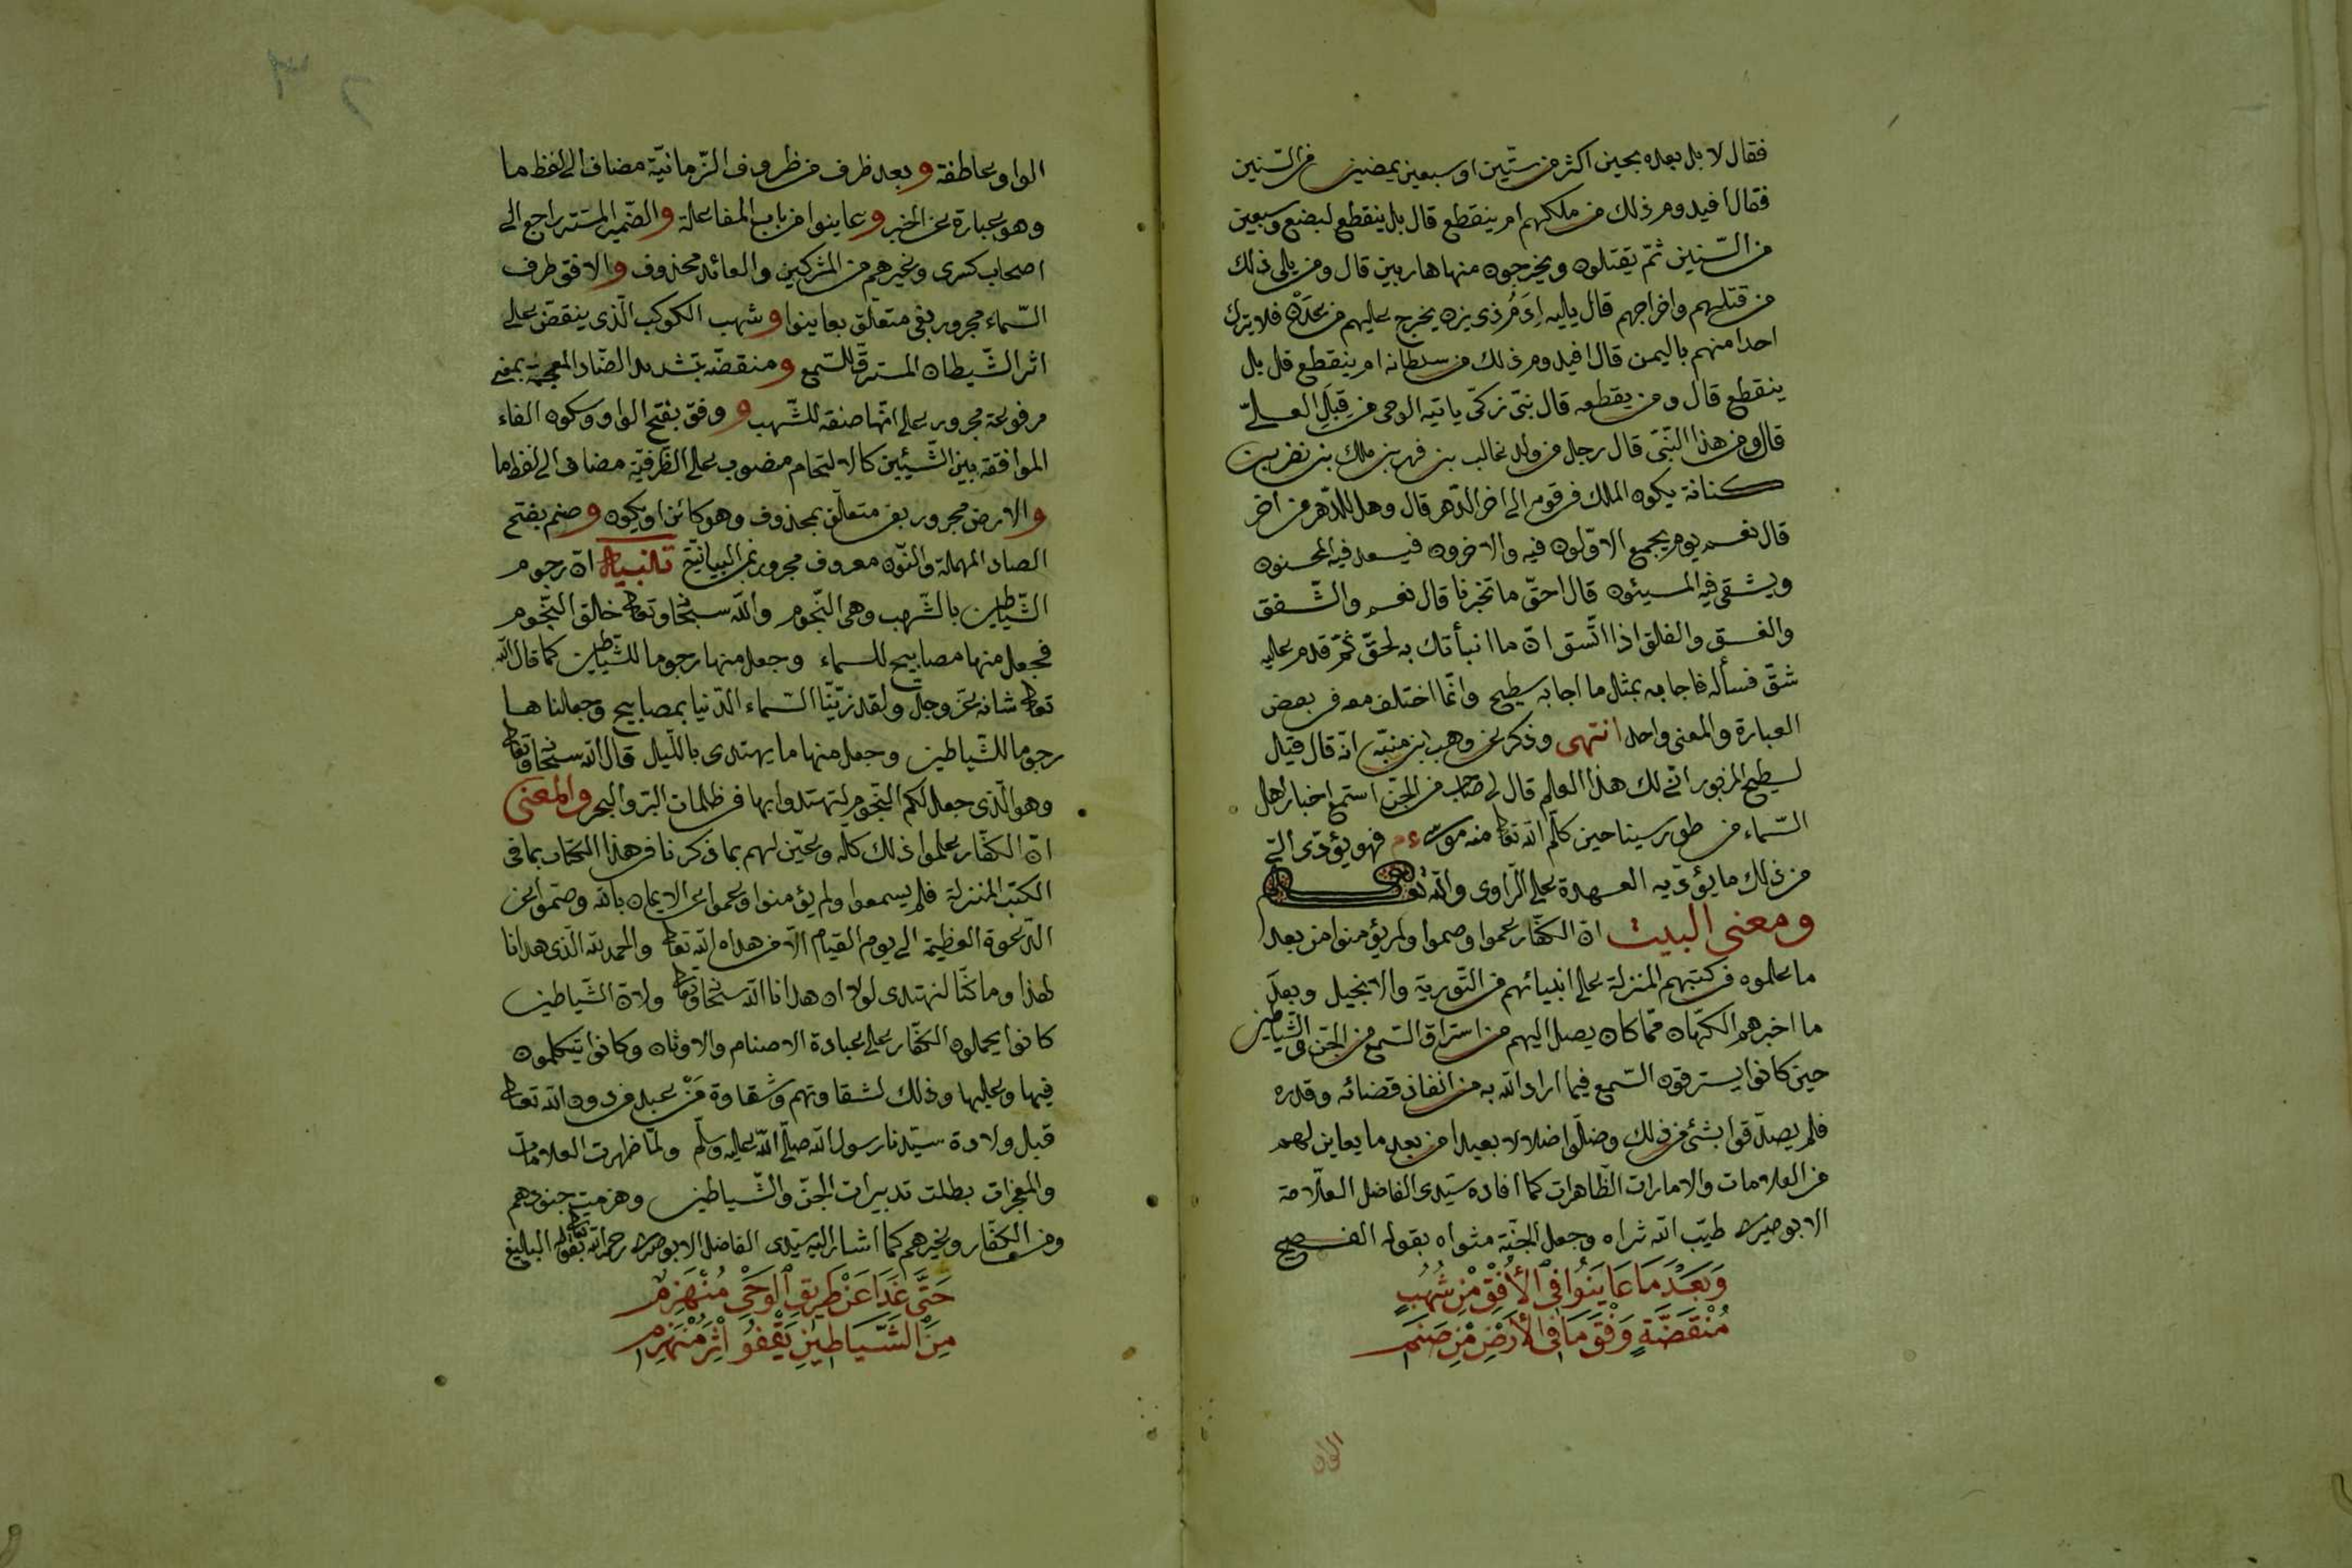 فقال لا بل بعده بحين اكثر من ستّين او سبعين يمضين من السّنين
فقال افيدوم ذلك من ملكهم ام ينقطع قال بل ينقطع لبضع وسبعين
من السّنين ثمّ يقتلون ويخرجون منها هاربين قال ومن يلى ذلك
من قتلهم واخراجهم قال يليه اِرَمُ ذى يزن يخرج عليهم من عَدَن فلا يترك
احدا منهم باليمن قال افيدوم ذلك من سلطانه ام ينقطع قال بل
ينقطع قال ومن يقطعه قال نبىّ زكىّ ياتيه الوحى من قِبَلِ العلىّ
قال ومن هذا النّبىّ قال رجل من ولد غالب بن فهر بن ملك بن نضر بن
كنانة يكون الملك فى قومه الى اخر الدّهر قال وهل للدّهر من اخر
قال نعم يوم يجمع الاوّلون فيه والاخرون فيسعد فيه المحسنون
ويشقى فيه المسيئون قال احقّ ما تخبرنا قال نعم والشّفق
والغسق والفلق اذا اتّسق انّ ما انبأتك به لحقّ ثمّ قدم عليه
شقّ فسأله فاجابه بمثل ما اجابه سطيح وانّما اختلف معه فى بعض
العبارة والمعنى واحد انتهى وذكر عن وهب ابن منبّه انّه قال قيل
لسطيح المزبور انّى لك هذا العلم قال لى صاحب من الجنّ استمع اخبار اهل
السّماء من طور سينا حين كلّم الله تعا منه موسى ءم فهو يؤدّى الىّ
من ذلك ما يؤدّيه العهدة على الرّاوى والله تعا
ومعنى البيت انّ الكفّار عموا وصموا ولم يؤمنوا من بعد
ما علموه فى كتبهم المنزلة على انبيائهم من التّورية والانجيل وبعدَ
ما اخبرهم الكهّان ممّا كان يصل اليهم من استراق السّمع من الجنّ والشّياطين
حين كانوا يسترقون السّمع فيما اراد الله به من انفاذ قضائه وقدره
فلم يصدّقوا بشئ من ذلك وضلّوا ضلالا بعيدا من بعد ما يعاين لهم
من العلامات والامارات الظّاهرات كما افاده سيّدى الفاضل العلّامة
الابوصيرى طيّب الله ثراه وجعل الجنّة مثواه بقوله الفصيح
وَبَعْدَ مَا عَايَنُوا فِى الأُفْقِ مِنْ شُهُبٍ
مُنْقَضَّةٍ وَفْقَ مَا فِى الأَرْضِ مِنْ صَنَمِ
الواو
الواو عاطفة و بعد ظرف من ظروف الزّمانيّة مضاف الى لفظ ما
وهو عبارة عن الخبر و عاينوا من باب المفاعلة و الضّمير المستتر راجع الى
اصحاب كسرى وغيرهم من المشركين والعائد محذوف و الافق طرف
السّماء مجرور بفى متعلّق بعاينوا و شهب الكوكب الّذى ينقضّ على
اثر الشّيطان المسترق للسّمع و منقضّه بتشديد الضّاد المعجمة بمعنى
مرفوعة مجرور على انّها صفة للشّهب و وفق بفتح الواو وسكون الفاء
الموافقة بين الشّيئين كالالتحام منصوب على الظّرفيّة مضاف الى لفظ ما
و الارض مجرور بفى متعلّق بمحذوف وهو كائن او يكون و صنم بفتح
الصاد المهملة والنّون معروف مجرور بمن البيانيّة تنبيه انّ رجوم
الشّياطين بالشّهب وهى النّجوم والله سبحانه وتعا خالق النّجوم
فجعل منها مصابيح للسماء وجعل منها رجوما للشّياطين كما قال الله
تعا شانه عزّ وجلّ ولقد زيّنّا السّماء الدّنيا بمصابيح وجعلناها
رجوما للشّياطين وجعل منها ما يهتدى باللّيل قال الله سبحانه وتعا
وهو الّذى جعل لكم النّجوم لتهتدوا بها فى ظلمات البرّ والبحر والمعنى
انّ الكفّار علموا ذلك كلّه وعيّن لهم بما ذكرنا فى هذا الكتاب بما فى
الكتب المنزلة فلم يسمعوا ولم يؤمنوا وعموا عن الايمان بالله وصمّوا عن
الدّعوة العظيمة الى يوم القيام الّا من هداه الله تعا والحمد لله الّذى هدانا
لهذا وما كنّا لنهتدى لولا ان هدانا الله سبحانه وتعا ولانّ الشّياطين
كانوا يحملون الكفّار على عبادة الاصنام والاوثان وكانوا يتكلمون
فيها وعليها وذلك لشقاوتهم وشقاوة مَنْ عبد من دون الله تعا
قبل ولادة سيّدنا رسول الله صلّى الله عليه وسلّم ولمّا ظهرت العلامات
والمعجزات بطلت تدبيرات الجنّ والشّياطين وهزمت جنودهم
ومن الكفّار وغيرهم كما اشار اليه سيّدى الفاضل الابوصيرى رحمه الله تعا بقوله البليغ
حَتَّى غَدَا عَنْ طَرِيقِ الوَحْىِ مُنْهَزِمٌ
مِنَ الشَّيَاطِينِ يَقْفُو اثْرَ مُنْهَزِمِ